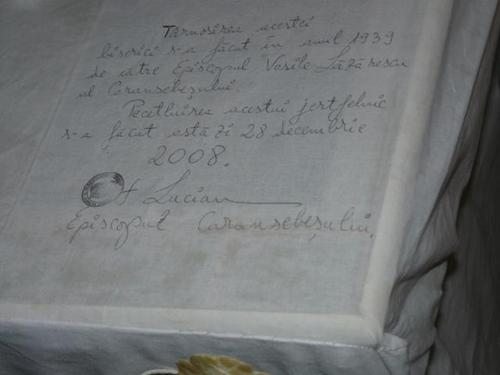 Tarnosirea acestei
biserici s-a făcut în anul 1939
de către Episcopul Vasile Lăzărescu
al Caransebeșului.
Pecetluirea acestui jertfelnic
s-a făcut astă zi 28 decembrie
2008.
† Lucian
Episcopul Caransebeșului,